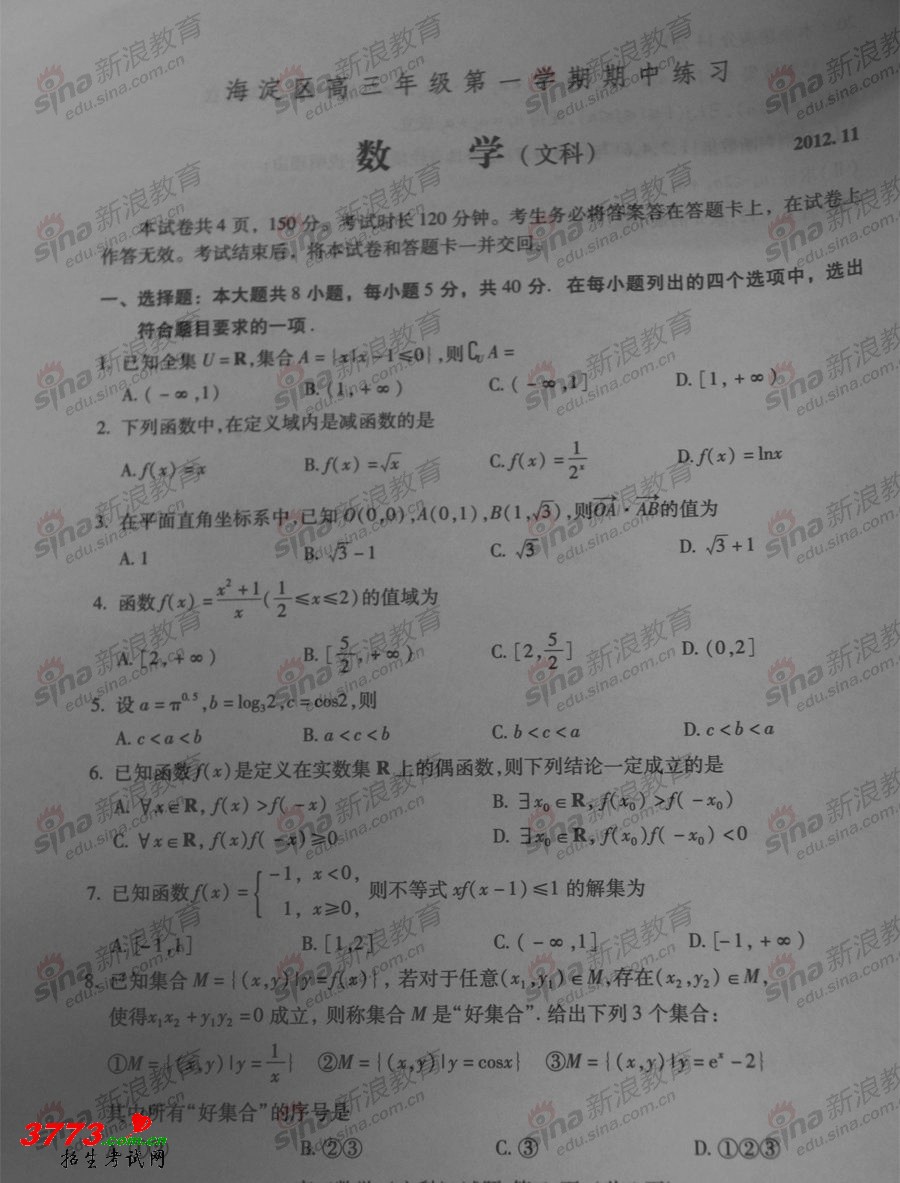 海淀区高三年级第一学期期中练习
数 学（文科）
2012.11
本试卷共4页，150分。考试时长120分钟。考生务必将答案答在答题卡上，在试卷上
作答无效。考试结束后，将本试卷和答题卡一并交回。
一、选择题：本大题共8小题，每小题5分，共40分．在每小题列出的四个选项中，选出
符合题目要求的一项．
1. 已知全集U=R,集合A={x|x-1≤0},则∁UA=
A.(-∞,1) B.(1,+∞) C.(-∞,1] D.[1,+∞)
2. 下列函数中,在定义域内是减函数的是
A.f(x)=x B.f(x)=√x C.f(x)=1/2^x D.f(x)=lnx
3. 在平面直角坐标系中,已知O(0,0),A(0,1),B(1,√3),则OA·AB的值为
A.1 B.√3-1 C.√3 D.√3+1
4. 函数f(x)=(x²+1)/x(1/2≤x≤2)的值域为
A.[2,+∞) B.[5/2,+∞) C.[2,5/2] D.(0,2]
5. 设a=π^0.5,b=log₃2,c=cos2,则
A.c<a<b B.a<c<b C.b<c<a D.c<b<a
6. 已知函数f(x)是定义在实数集R上的偶函数,则下列结论一定成立的是
A. ∀x∈R,f(x)>f(-x) B. ∃x₀∈R,f(x₀)>f(-x₀)
C. ∀x∈R,f(x)f(-x)≥0 D. ∃x₀∈R,f(x₀)f(-x₀)<0
7. 已知函数f(x)={-1, x<0, 1, x≥0, 则不等式xf(x-1)≤1的解集为
A.[-1,1] B.[1,2] C.(-∞,1] D.[-1,+∞)
8. 已知集合M={(x,y)|y=f(x)}，若对于任意(x₁,y₁)∈M,存在(x₂,y₂)∈M,
使得x₁x₂+y₁y₂=0成立，则称集合M是“好集合”.给出下列3个集合：
①M={(x,y)|y=1/x} ②M={(x,y)|y=cosx} ③M={(x,y)|y=eˣ-2}
其中所有“好集合”的序号是
B.②③ C.③ D.①②③
3773.com.cn
招生考试网
sina新浪教育
edu.sina.com.cn